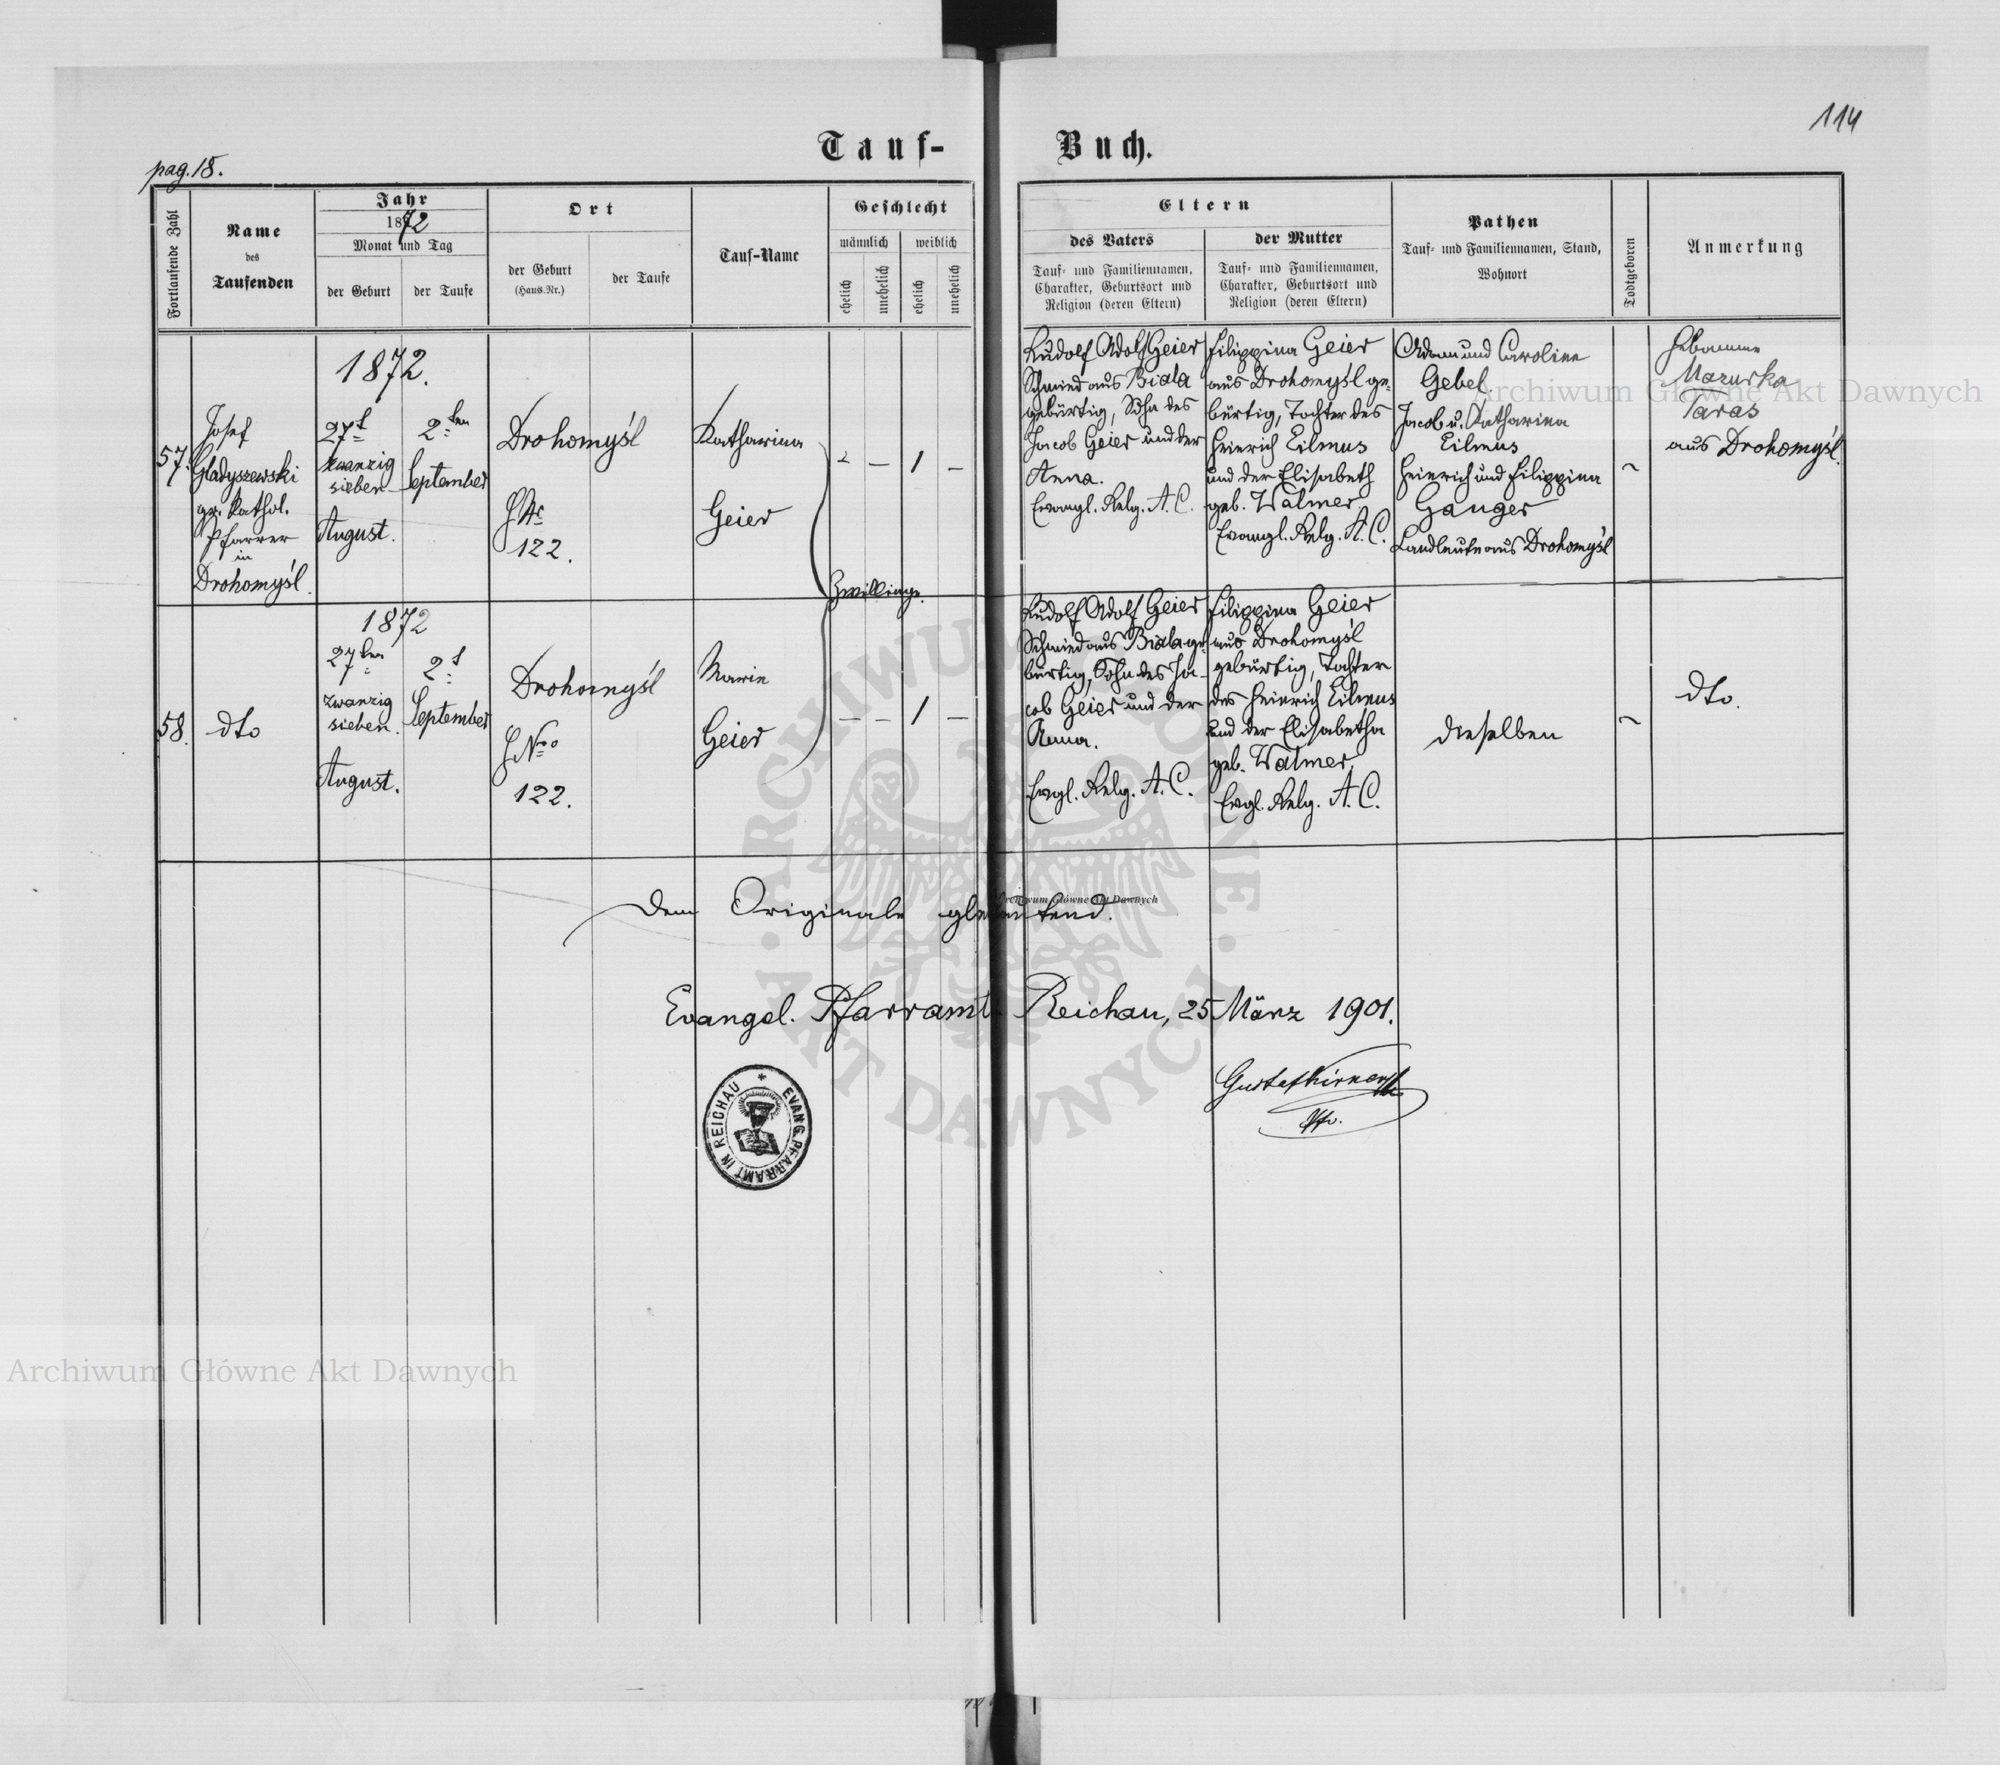 114
Tauf-
Buch.
pag. 18.
Fortlaufende Zahl
Name
des
Taufenden
Jahr
1872
Monat und Tag
der Geburt
der Taufe
Ort
der Geburt
(Haus-Nr.)
der Taufe
Tauf-Name
Geschlecht
männlich
weiblich
ehelich
unehelich
ehelich
unehelich
Eltern
des Vaters
Tauf- und Familiennamen,
Charakter, Geburtsort und
Religion (deren Eltern)
der Mutter
Tauf- und Familiennamen,
Charakter, Geburtsort und
Religion (deren Eltern)
Pathen
Tauf- und Familiennamen, Stand,
Wohnort
Todtgeboren
Anmerkung
57.
Josef
Gladyszewski
gr. Kathol.
Pfarrer
in
Drohomyśl.
1872.
27t
zwanzig
sieben
August.
2ten
September
Drohomyśl
122.
Katharina
Geier
– – 1 –
Zwillinge.
Rudolf Adolf Geier
Schmied aus Biala
gebürtig, Sohn des
Jacob Geier und der
Anna.
Evangl. Relg. A. C.
Filippina Geier
aus Drohomyśl ge-
bürtig, Tochter des
Heinrich Eilmus
und der Elisabeth
geb. Walmer
Evangl. Relg. A. C.
Adam und Caroline
Gebel
Jacob u. Katharina
Eilmus
Heinrich und Filippina
Ganger
Landleute aus Drohomyśl
~
Hebamme
Mazurka
Taras
aus Drohomyśl.
58.
dto
1872
27ten
zwanzig
sieben.
August.
2t
September
Drohomyśl
HNro
122.
Marie
Geier
– – 1 –
Rudolf Adolf Geier
Schmied aus Biala ge-
bürtig, Sohn des Ja-
cob Geier und der
Anna.
Evgl. Relg. A. C.
Filippina Geier
aus Drohomyśl
gebürtig, Tochter
des Heinrich Eilmus
und der Elisabetha
geb. Walmer
Evgl. Relg. A. C.
dieselben
~
dto.
Dem Originale gleichlautend.
Evangel. Pfarramt Reichau, 25 März 1901.
Pfr.
EVANG. PFARRAMT IN REICHAU *
Archiwum Główne Akt Dawnych
Archiwum Główne Akt Dawnych
Archiwum Główne Akt Dawnych
ARCHIWUM GŁÓWNE · AKT DAWNYCH ·